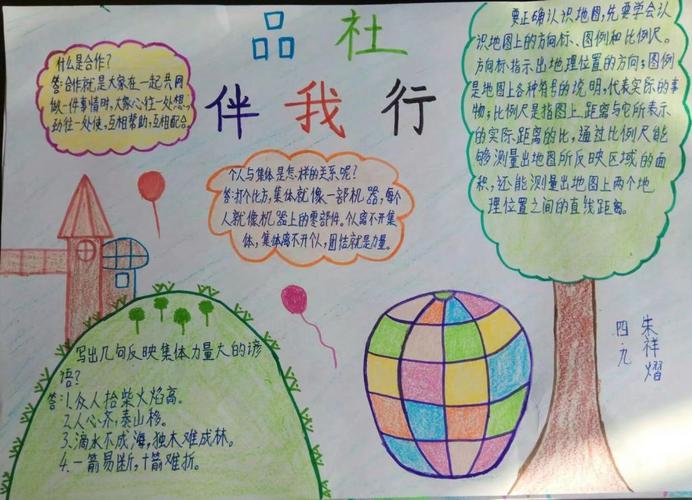 品社
伴我行
什么是合作？
答：合作就是大家在一起共同
做一件事情时，大家心往一处想，
劲往一处使，互相帮助，互相配合。
个人与集体是怎样的关系呢？
答：打个比方，集体就像一部机器，每个
人就像机器上的零部件。个人离不开集
体，集体离不开个人，团结就是力量。
要正确认识地图，先要学会认
识地图上的方向标、图例和比例尺。
方向标指示出地理位置的方向；图例
是地图上各种符号的说明，代表实际的事
物；比例尺是指图上距离与它所表示
的实际距离的比，通过比例尺能
够测量出地图所反映区域的面
积，还能测量出地图上两个地
理位置之间的直线距离。
写出几句反映集体力量大的谚
语？
答：1.众人拾柴火焰高。
2.人心齐，泰山移。
3.滴水不成海，独木难成林。
4.一箭易断，十箭难折。
四九
朱祥熠